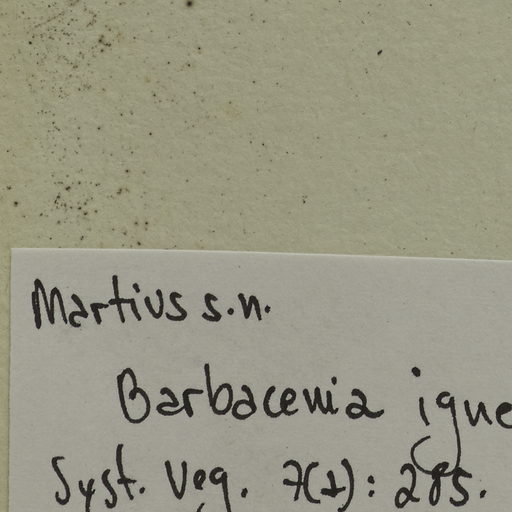 Martius s.n.
Barbacenia igne
Syst. Veg. 7(1): 285.